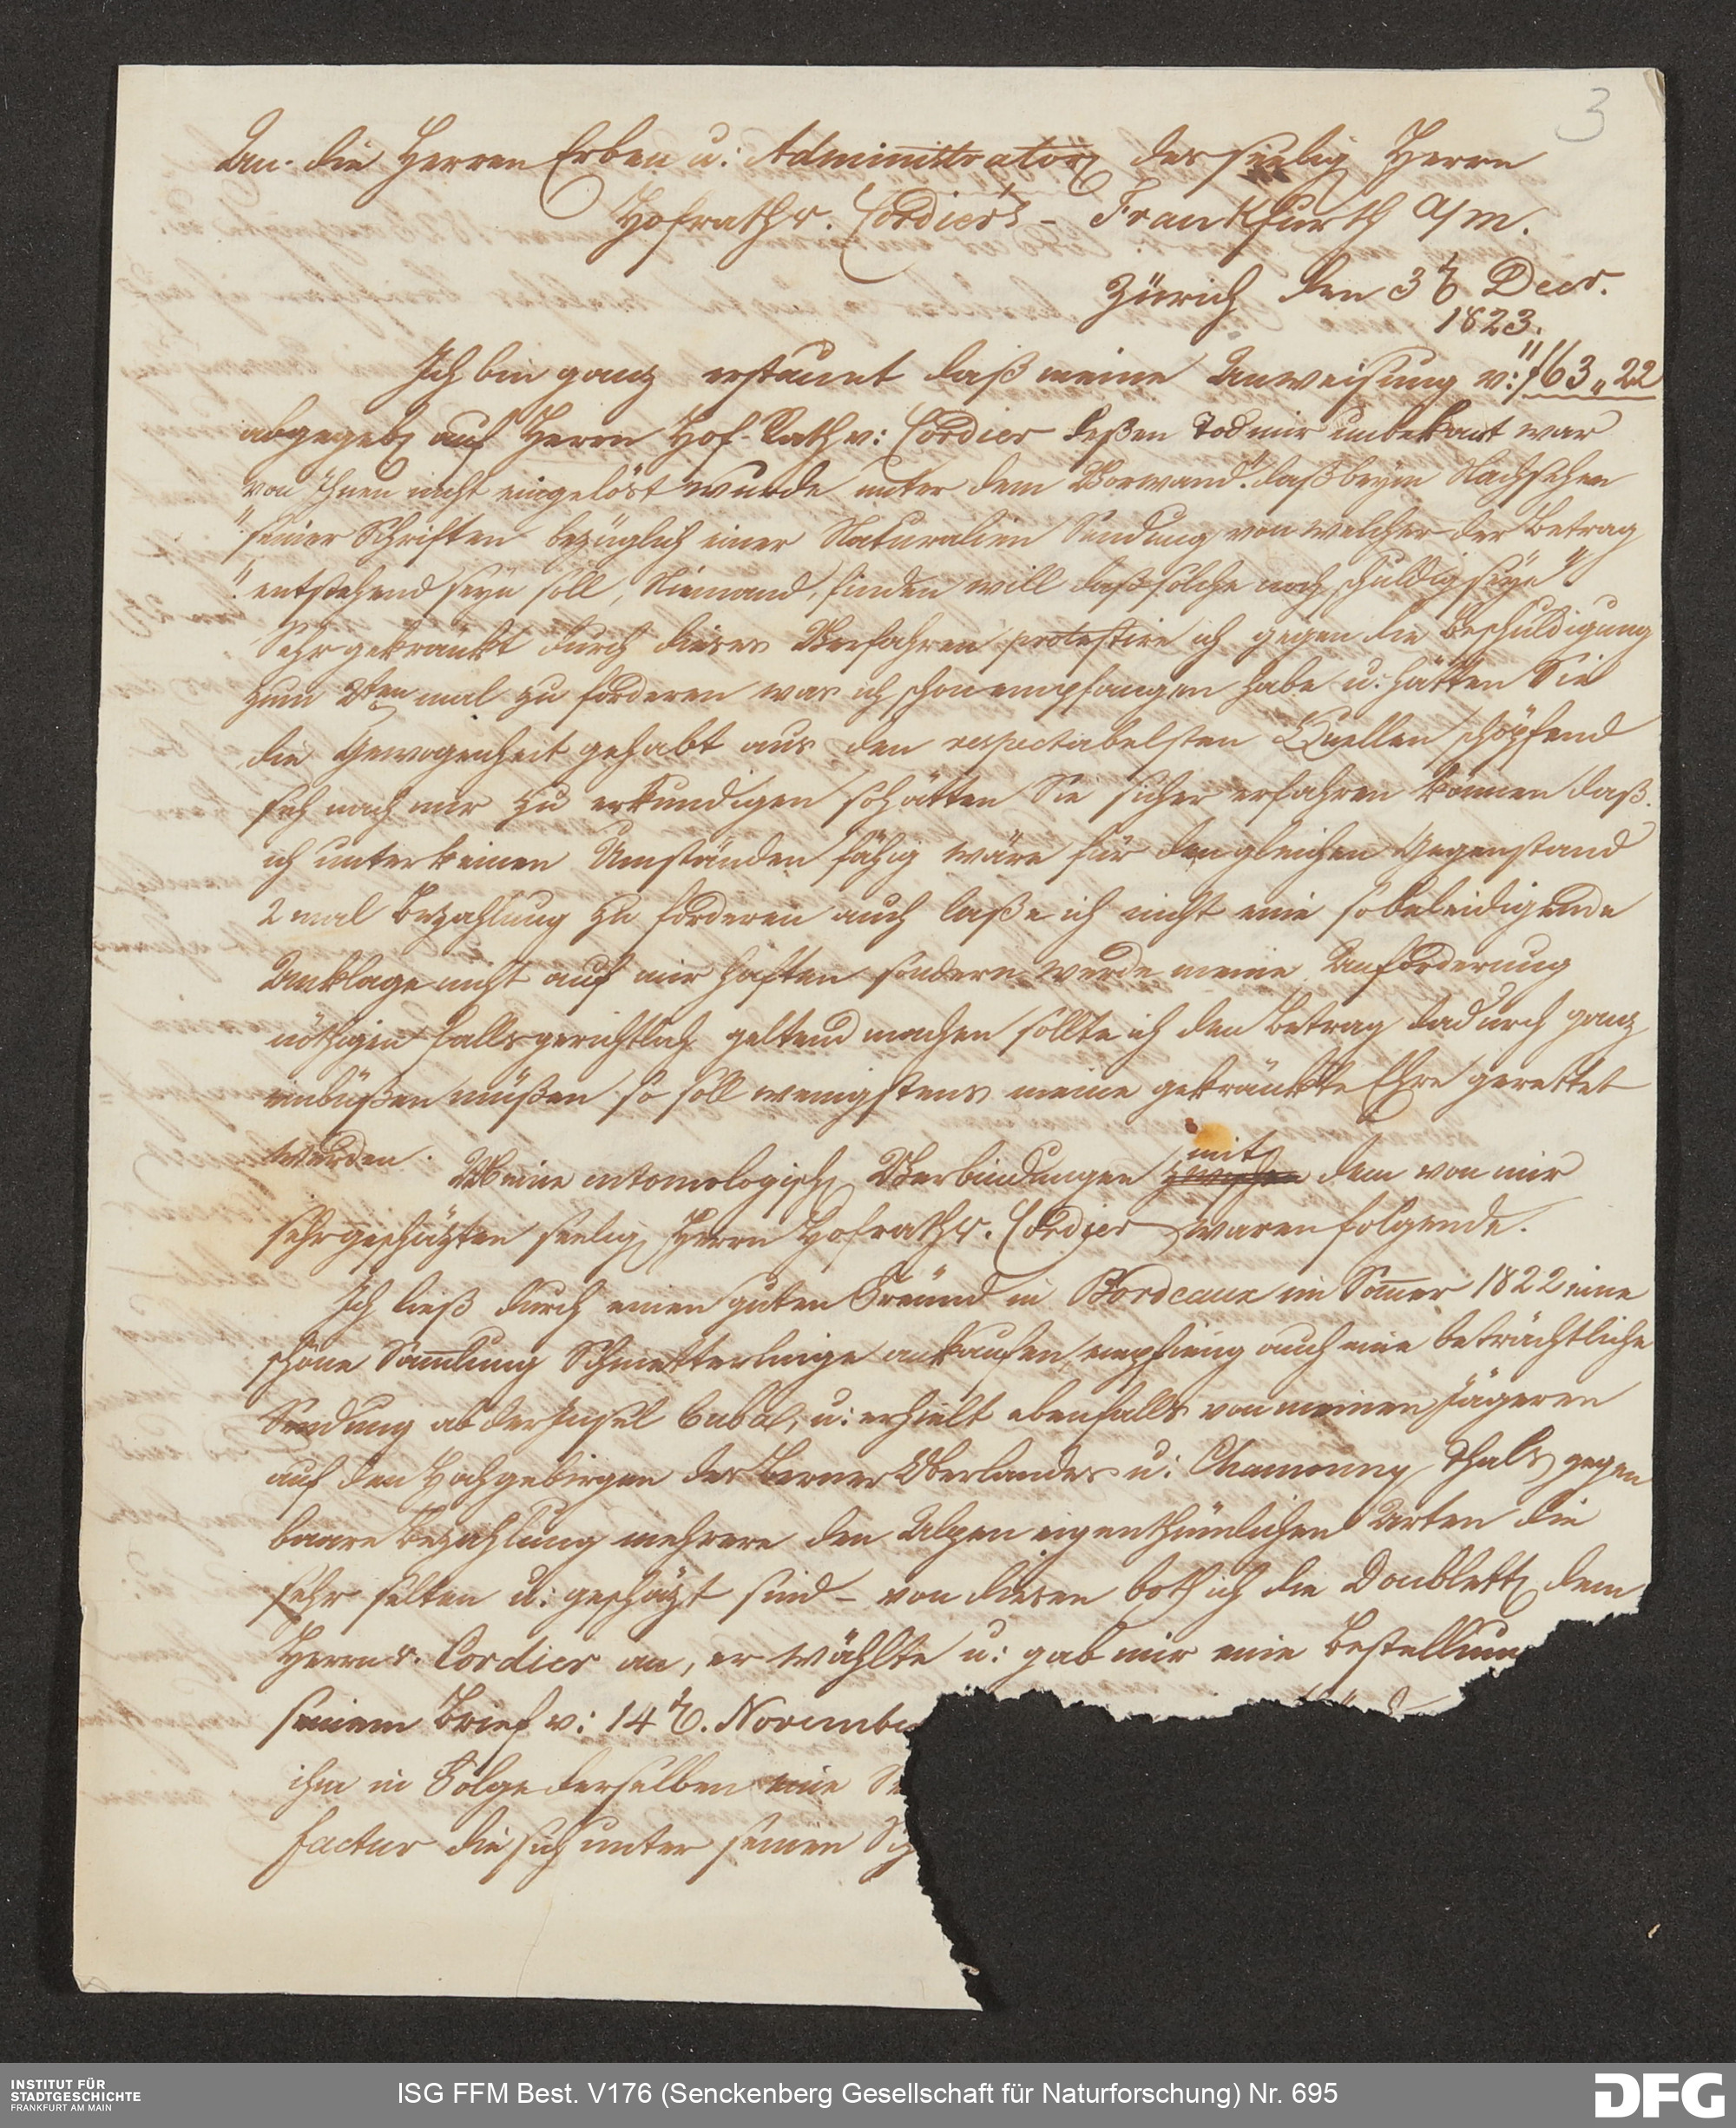 3
An die Herren Erben u: Administratorē des seelig Herrn
Hofrath v. Cordier's - Frankfurth a/m.
Zürich den 3t Decr.
1823.
Ich bin ganz erstaunt daß meine Anweisung v: f 63„22
abgegebē auf Herrn Hof-Rath v: Cordier deßen Tod mir unbekant war
von Ihnen nicht eingelöst wurde unter dem Vorwand: "daß beym Nachsehen
"seiner Schriften bezüglich einer Naturalien Sendung von welcher der Betrag
"entstehend seyn soll, Niemand, finden will daß solche noch schuldig seye"
Sehr gekränkt durch dieses Verfahren protestire ich gegen die Beschuldigung
zum 2ten mal zu forderen was ich schon empfangen habe u: hätten Sie
die Gewogenheit gehabt aus den respectabelsten Quellen schöpfend
sich nach mir zu erkundigen so hätten Sie sicher erfahren können daß
ich unter keinen Umständen fähig wäre für den gleichen Gegenstand
2 mal Bezahlung zu forderen auch laße ich nicht eine so beleidigende
Anklage nicht auf mir haften sondern werde meine Anforderung
nöthigen falls gerichtlich geltend machen sollte ich den Betrag dadurch ganz
einbüßen müßen so soll wenigstens meine gekränkte Ehre gerettet
werden.
Meine entomologischē Verbindungen mit zwischen dem von mir
sehr geschäzten seelig Herrn Hofrath v. Cordier waren folgende.
Ich ließ durch einen guten Freünd in Bordeaux im Som̄er 1822 eine
schöne Sam̄lung Schmetterlinge ankaufen, empfieng auch eine beträchtliche
Sendung ab der Insel Cuba, u: erhielt ebenfalls von meinen Jägeren
auf den Hochgebirgen des Berner Oberlandes u: Chamouny Thals gegen
baare Bezahlung mehrere den Alpen eigenthümlichen Arten die
sehr selten u: geschäzt sind - von diesen both ich die Doublettē dem
Herrn v. Cordier an, er wählte u: gab mir eine Bestellun
seinem Brief v: 14t. Novembe
ihm in Folge derselben eine Se
factur die sich unter seinen Sch
INSTITUT FÜR
STADTGESCHICHTE
FRANKFURT AM MAIN
ISG FFM Best. V176 (Senckenberg Gesellschaft für Naturforschung) Nr. 695
DFG